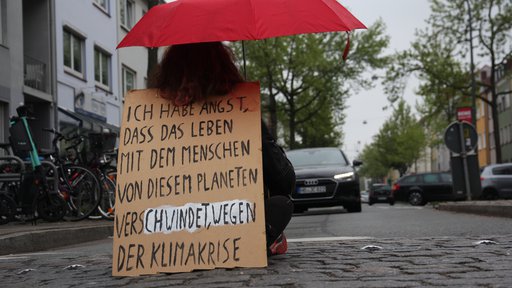 ICH HABE ANGST,
DASS DAS LEBEN
MIT DEM MENSCHEN
VON DIESEM PLANETEN
VERSCHWINDET, WEGEN
DER KLIMAKRISE